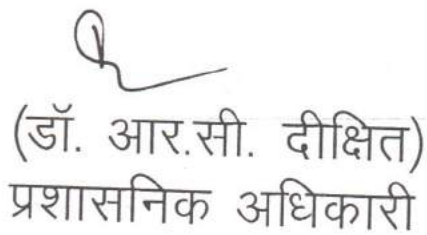 (डॉ. आर.सी. दीक्षित)
प्रशासनिक अधिकारी